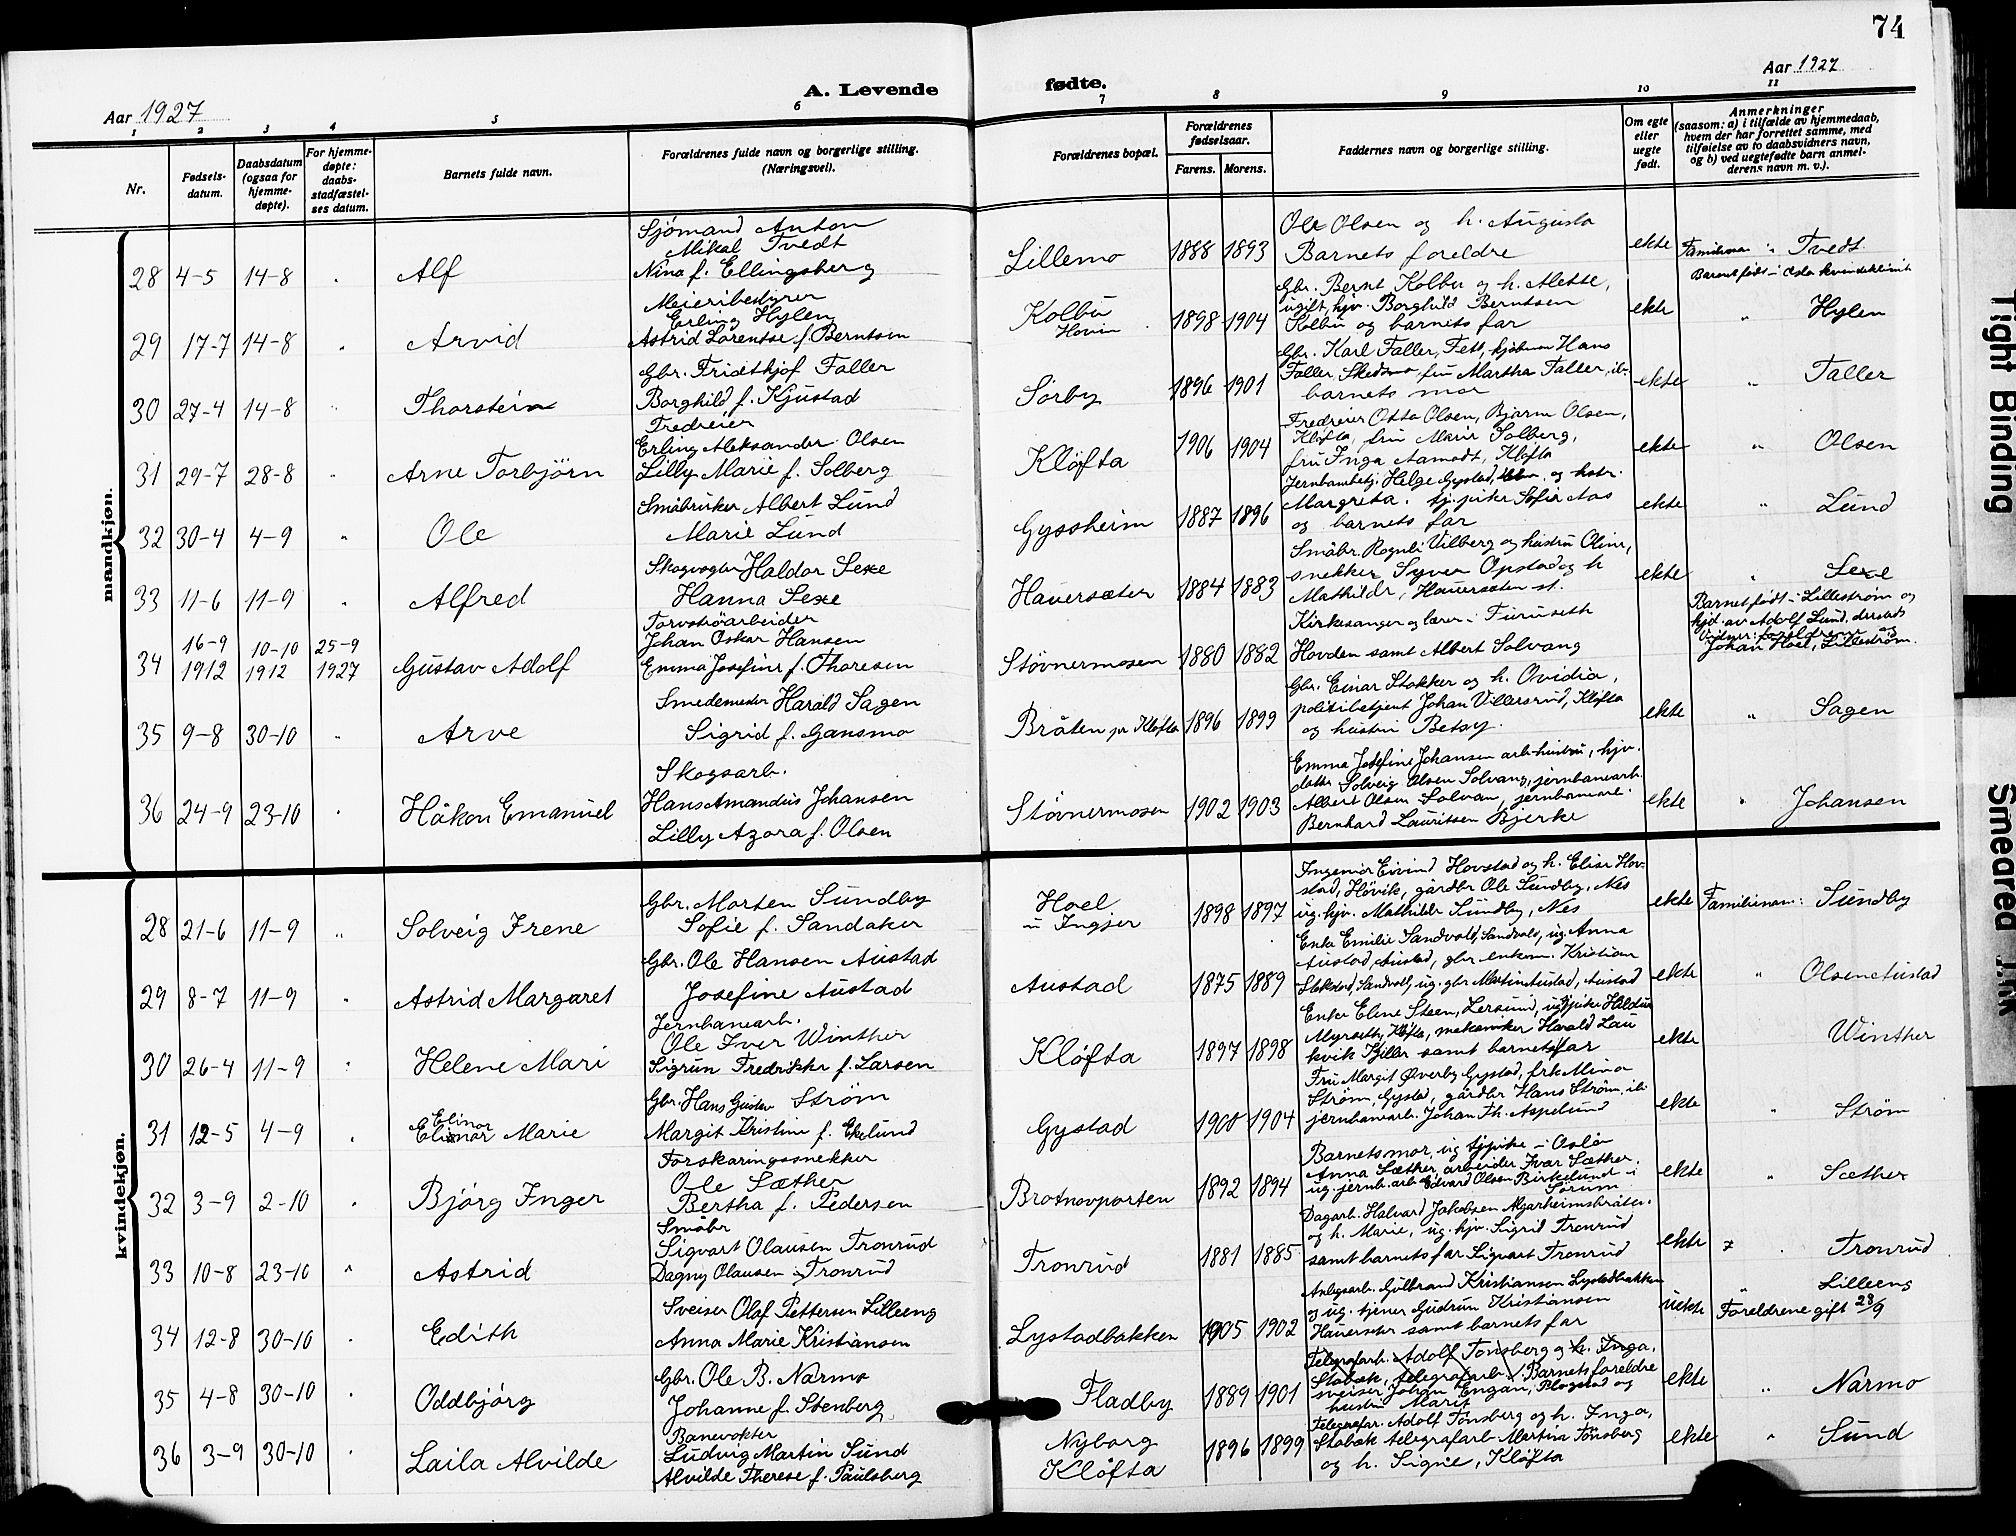 74
Aar 1927
A. Levende fødte.
Aar 1927
1 2 3 4 5 6 7 8 9 10 11
Nr.
Fødsels-
datum.
Daabsdatum
(ogsaa for
hjemme-
døpte).
For hjemme-
døpte:
daabs-
stadfæstel-
ses datum.
Barnets fulde navn.
Forældrenes fulde navn og borgerlige stilling.
(Næringsvei).
Forældrenes bopæl.
Forældrenes
fødselsaar.
Farens. Morens.
Faddernes navn og borgerlige stilling.
Om egte
eller
uegte
født.
Anmerkninger
(saasom: a) i tilfælde av hjemmedaab,
hvem der har forrettet samme, med
tilføielse av to daabsvidners navn,
og b) ved uegtefødte barn anmel-
derens navn m. v.).
mandkjøn.
28 4-5 14-8 " Alf
Sjømand Anton
Mikal Tvedt
Nina f. Ellingsberg
Lillemo 1888 1893
Ole Olsen og h. Augusta
Barnets foreldre
ekte Familienavn : Tvedt.
Barnet født i Oslo kvindeklinik
29 17-7 14-8 " Arvid
Meieribestyrer
Erling Hylen
Astrid Lorentse f. Berntsen
Kolbu
Hovin
1898 1904
Gbr. Bernt Kolbu og h. Alette,
ugift hjv. Borghild Berntsen
Kolbu og barnets far
ekte " Hylen
30 27-4 14-8 " Thorstein
Gbr. Fridthjof Faller
Borghild f. Kjustad
Sørby 1896 1901
Gbr. Karl Faller, Fett, kjøbman Hans
Faller, Skedsmo, fru Martha Faller, ib.
barnets mor
ekte " Faller
31 29-7 28-8 " Arne Torbjörn
Fredreier
Erling Aleksander Olsen
Lilly Marie f. Solberg
Kløfta 1906 1904
Fredreier Otto Olsen, Bjarne Olsen,
Kløfta, fru Marie Solberg,
fru Inga Aamodt, Kløfta
ekte " Olsen
32 30-4 4-9 " Ole
Småbruker Albert Lund
Marie Lund
Gyssheim 1887 1896
Jernbanebetj. Helge Gystad, og hstr.
Margreta. tj.pike Sofie Aas
og barnets far
ekte " Lund
33 11-6 11-9 " Alfred
Skogvogter Haldor Sexe
Hanna Sexe
Hauersæter 1884 1883
Småbr. Rognli Vilberg og hustru Oline,
snekker Syver Opstad og h
Mathilde, Hauerseter st.
ekte " Sexe
34 16-9 1912 10-10 1912 25-9 1927 Gustav Adolf
Torvstrøarbeider
Johan Oskar Hansen
Emma Josefine f. Thoresen
Støvnermosen 1880 1882
Kirkesanger og lærer i Furuseth
Hovden samt Albert Solvang
Barnet født i Lillestrøm og
hjd. av Adolf Lund, dersteds
Vidner:
Johan Hoel, Lillestrøm.
35 9-8 30-10 " Arve
Smedemester Harald Sagen
Sigrid f. Gansmo
Bråten pr Kløfta 1896 1899
Gbr. Einar Stokker og h. Ovidia,
politibetjent Johan Villersrud, Kløfta
og hustru Betsy.
ekte " Sagen
36 24-9 23-10 " Håkon Emanuel
Skogsarb.
Hans Amandus Johansen
Lilly Azora f. Olsen
Støvnermosen 1902 1903
Emma Josefine Johansen arb.hustru, hjv.
datter Solveig Olsen Solvang, jernbanearb.
Albert Olsen Solvan, jernbanearb.
Bernhard Lauritsen Bjerke
ekte " Johansen
kvindekjøn.
28 21-6 11-9 " Solveig Irene
Gbr. Morten Sundby
Sofie f. Sandaker
Hoel
u Ingjer
1898 1897
Ingeniør Eivind Hovstad og h. Elise Hov-
stad, Høvik, gårdbr Ole Sundby, Nes
ug. hjv. Mathilde Sundby, Nes
ekte Familienavn: Sundby
29 8-7 11-9 " Astrid Margaret
Gbr. Ole Hansen Austad
Josefine Austad
Austad 1875 1889
Enke Emilie Sandvold, Sandvold, ug. Anna
Austad, Austad, gbr enkem. Kristian
Stokstad, Sandvold, ug. gbr Martin Austad, Austad
ekte " Olsen Austad
30 26-4 11-9 " Helene Mari
Jernbanearb.
Ole Iver Winther
Sigrun Fredrikke f. Larsen
Kløfta 1897 1898
Enke Eline Steen, Lersund, ug tjpike Hildur
Myrseth, Kløfta, mekaniker Harald Lau
kvik Kjiller samt barnets far
ekte Winther
31 12-5 4-9 " Elinor Marie
Elinor
Gbr. Hans Gustav Strøm
Margit Kristine f. Ekelund
Gystad 1900 1904
Fru Margit Øverby Gystad, frk Mina
Strøm, Gystad, gårdbr Hans Strøm, ib.
jernbanearb. Johan Th. Aspelund
ekte " Strøm
32 3-9 2-10 " Bjørg Inger
Forskaringssnekker
Ole Sæther
Bertha f. Pedersen
Brotnovporten 1892 1894
Barnets mor, ug tjpike i Oslo
Anna Sæther, arbeider Ivar Sæther,
ug. jernb.arb Edvard Olsen Birkelund i
Sørum
ekte " Sæther
33 10-8 23-10 " Astrid
Småbr
Sigvart Olausen Tronrud
Dagny Olausen Tronrud
Tronrud 1881 1885
Dagarb. Halvard Jakobsen Algarheimsbråten
og h. Marie, ug. hjv. Sigrid Tronrud
samt barnets far Sigvart Tronrud
ekte " Tronrud
34 12-8 30-10 " Edith
Sveiser Olaf Pettersen Lilleeng
Anna Marie Kristiansen
Lystadbakken 1905 1902
Anlegsarb. Gulbrand Kristiansen Lystadbakken
og ug. tjener Gudrun Kristiansen
Hauerseter samt barnets far
uekte " Lilleeng
Foreldrene gift 28/9
35 4-8 30-10 " Oddbjørg
Gbr. Ole B. Nårmo
Johanne f. Stenberg
Fladby 1889 1901
Telegrafarb. Adolf Tønsberg og h. Inga,
Stabæk, telegrafarb. Barnets foreldre
sveiser Johan Engan, Blogstad og
hustru Marit
ekte " Nårmo
36 3-9 30-10 " Laila Alvilde
Banevokter
Ludvig Martin Sund
Alvilde Therese f. Paulsberg
Nyborg
Kløfta
1896 1899
Telegrafar. Adolf Tønsberg og h. Inga,
Stabæk telegrafarb Martin Tønsberg
og h. Signe, Kløfta
ekte " Sund
Tight Binding
Smeared Ink